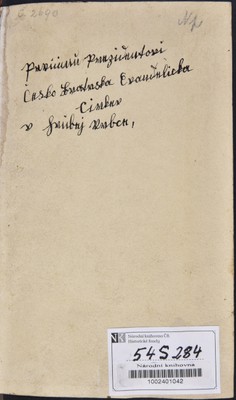 Prvnímu Prezidentovi
Česko Bratrska Evandělicka
Cirkev
v Hrubej Vrbce,
Národní knihovna ČR
Historické fondy
54 S 284
Národní knihovna
1002401042